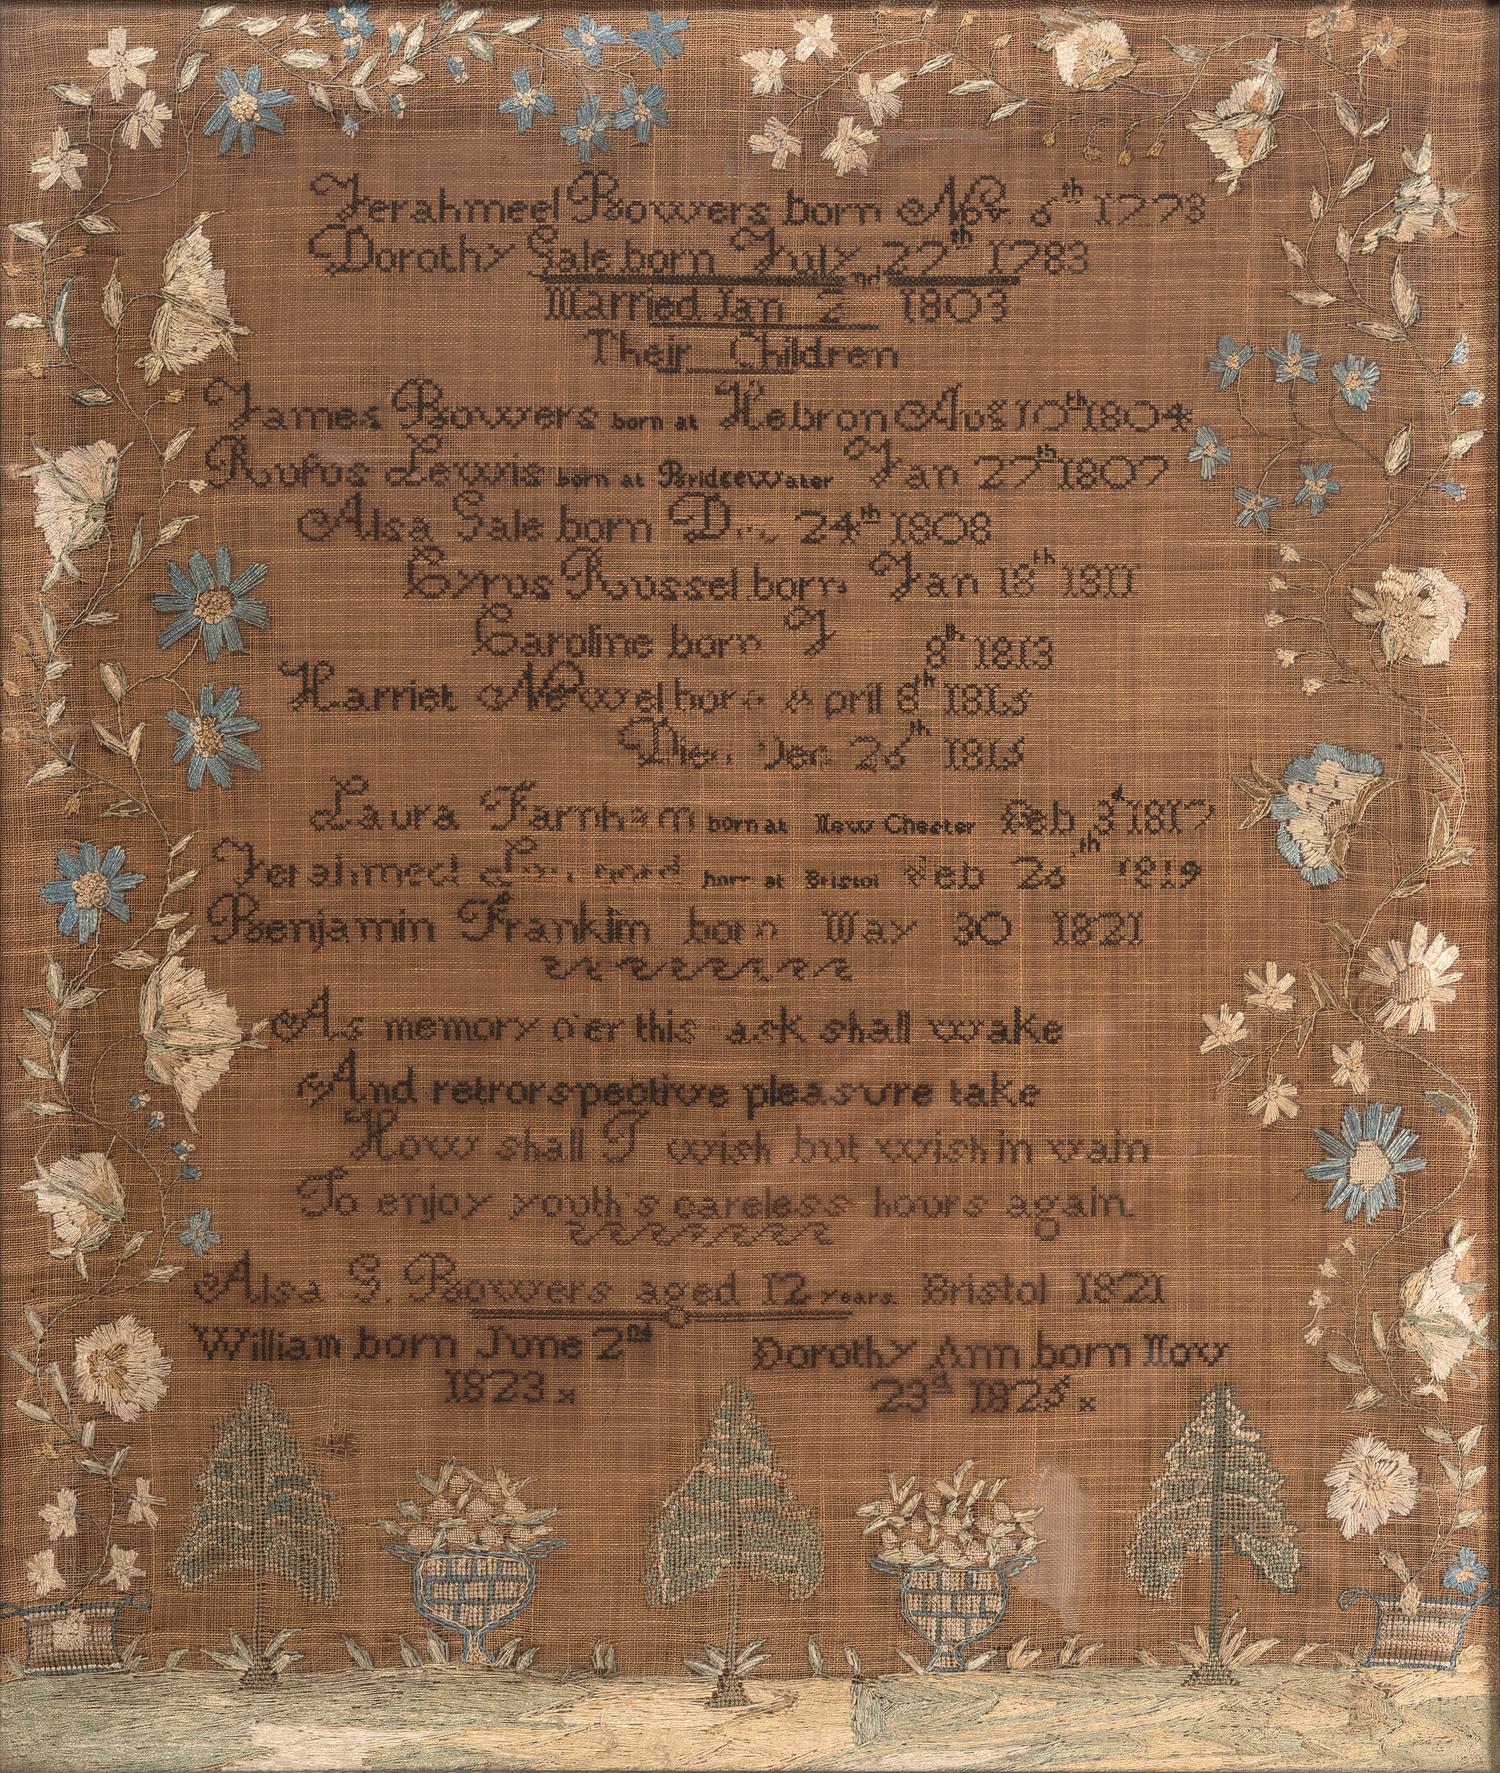 Jerahmeel Bowers born Nov 6th 1778
Dorothy Sale born July 27th 1783
Married Jan 2nd 1803
Their Children
James Bowers born at Hebron Aug 10th 1804
Rufus Lewis born at Bridgewater Jan 27th 1807
Alsa Sale born 24th 1808
Cyrus Russel born Jan 18th 1811
Caroline born J 8th 1813
Harriet Newel born April 8th 1815
26th 1815
Laura Farnham born at New Chester Feb 3d 1817
Jerahmeel born at Bristol Feb 26th 1819
Benjamin Franklin born May 30 1821
As memory o'er this ask shall wake
And retrorspective pleasure take
How shall I wish but wish in vain
To enjoy youth's careless hours again
Alsa S. Bowers aged 12 years. Bristol 1821
William born June 2nd Dorothy Ann born Nov
1823 x 23d 1825 x